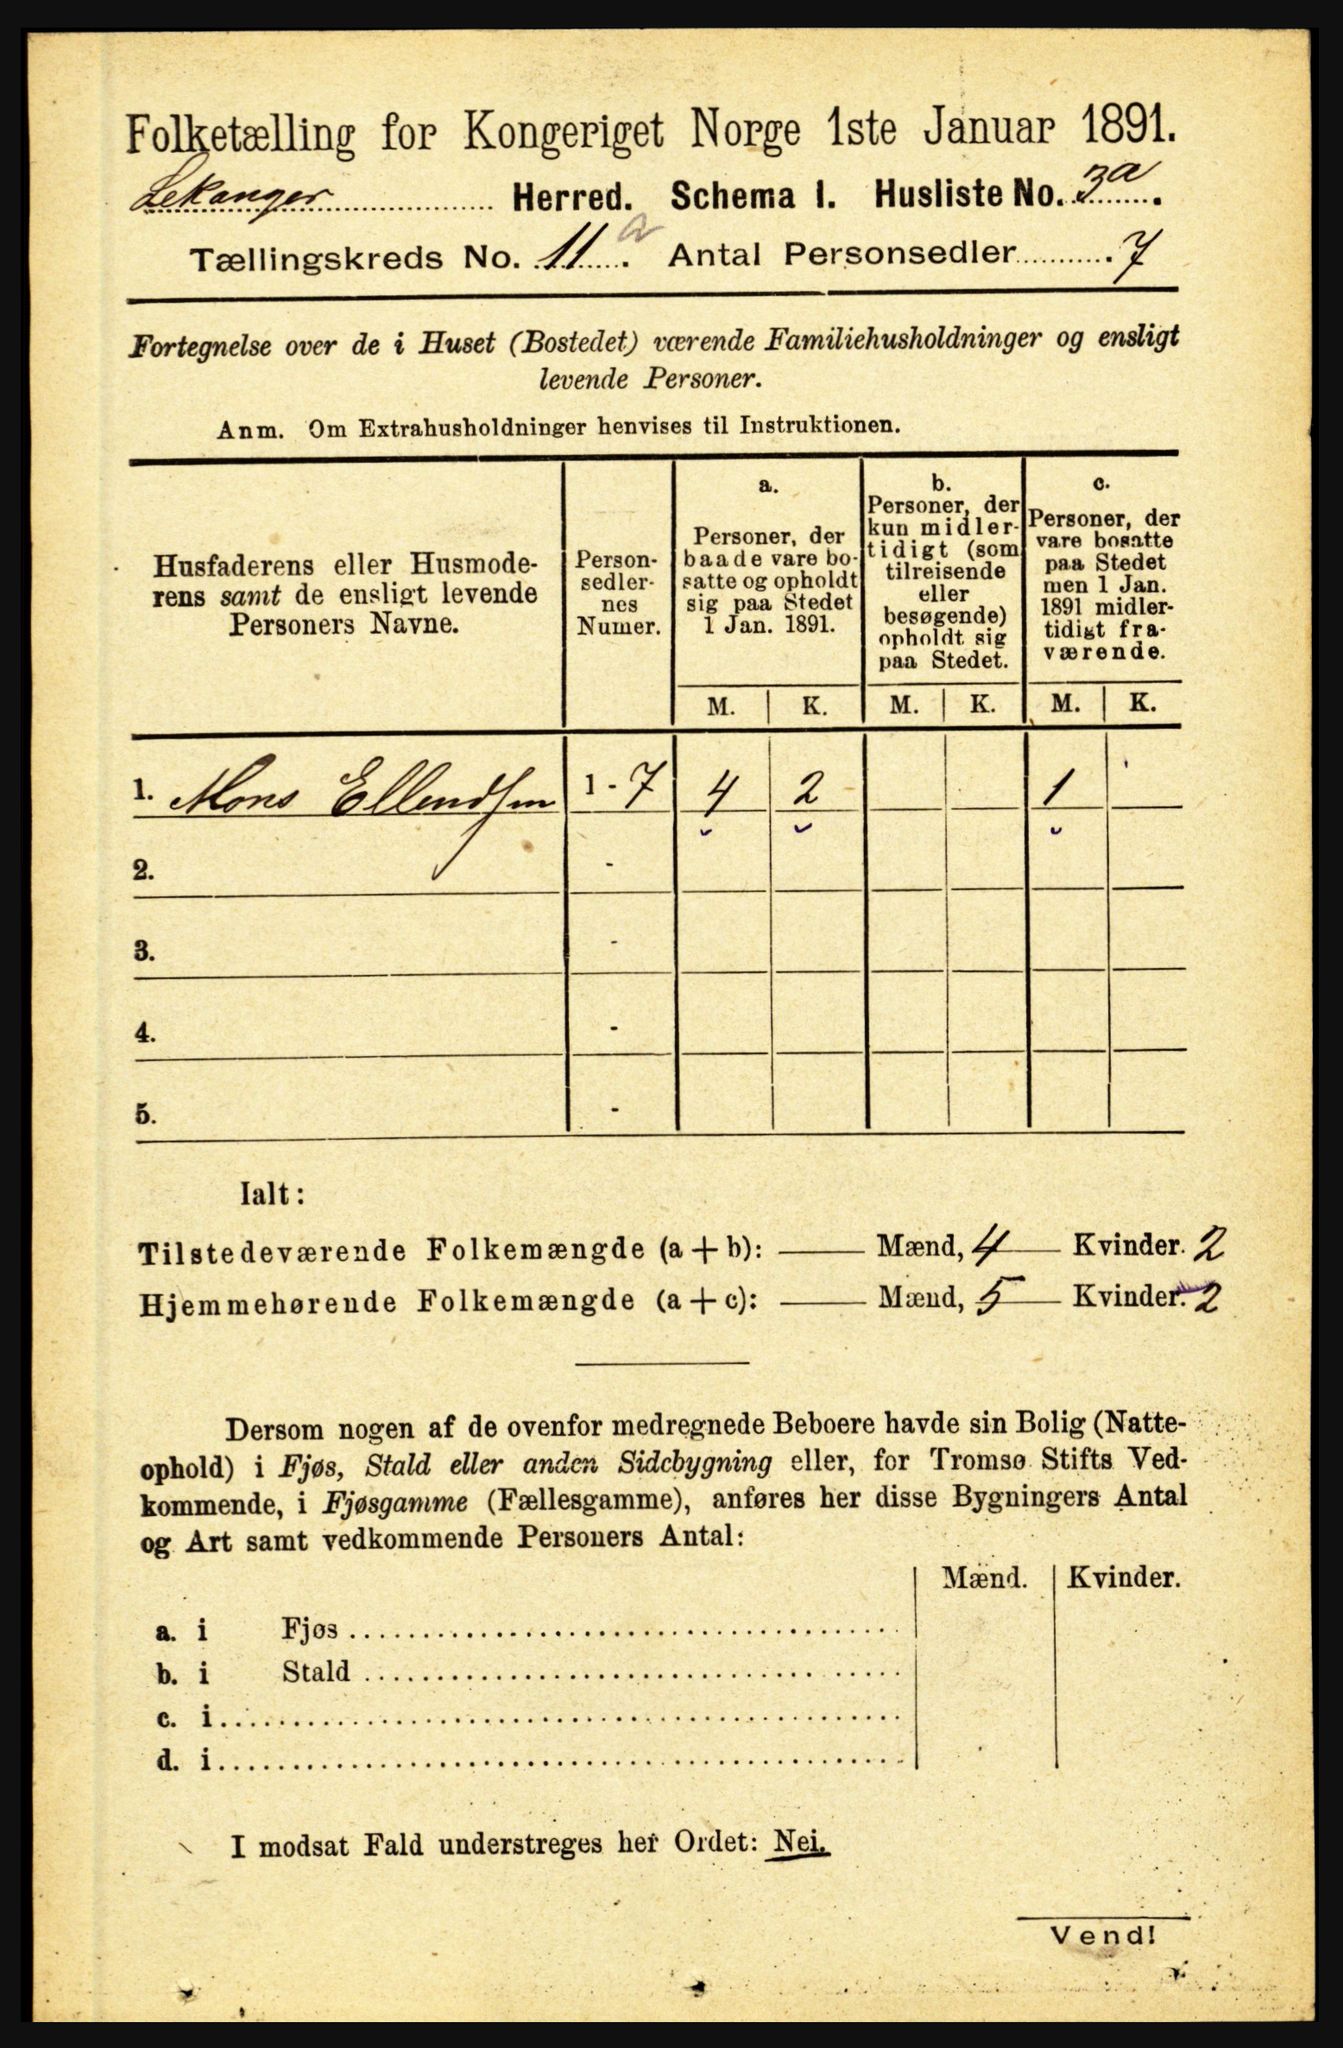 Folketælling for Kongeriget Norge 1ste Januar 1891.
Lekanger Herred. Schema I. Husliste No. 3a.
Tællingskreds No. 11a. Antal Personsedler 7
Fortegnelse over de i Huset (Bostedet) værende Familiehusholdninger og ensligt
levende Personer.
Anm. Om Extrahusholdninger henvises til Instruktionen.
Husfaderens eller Husmode-
rens samt de ensligt levende
Personers Navne.
Person-
sedler-
nes
Numer.
a.
Personer, der
baade vare bo-
satte og opholdt
sig paa Stedet
1 Jan. 1891.
b.
Personer, der
kun midler-
tidigt (som
tilreisende
eller
besøgende)
opholdt sig
paa Stedet.
c.
Personer, der
vare bosatte
paa Stedet
men 1 Jan.
1891 midler-
tidigt fra-
værende.
M. K. M. K. M. K.
1. Mons Ellendsen 1 - 7 4 2 1
2. -
3. -
4. -
5. -
Ialt:
Tilstedeværende Folkemængde (a + b): Mænd, 4 Kvinder. 2
Hjemmehørende Folkemængde (a + c): Mænd, 5 Kvinder. 2
Dersom nogen af de ovenfor medregnede Beboere havde sin Bolig (Natte-
ophold) i Fjøs, Stald eller anden Sidebygning eller, for Tromsø Stifts Ved-
kommende, i Fjøsgamme (Fællesgamme), anføres her disse Bygningers Antal
og Art samt vedkommende Personers Antal:
Mænd. Kvinder.
a. i Fjøs
b. i Stald
c. i
d. i
I modsat Fald understreges her Ordet: Nei.
Vend!